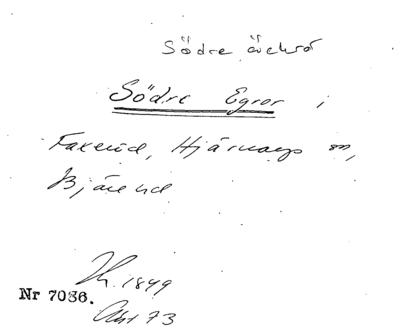 Södre
Södre Egror i
Faxerud, Hjärnarps sn,
Bjärehd
Nr 7036.
1849
Akt 73